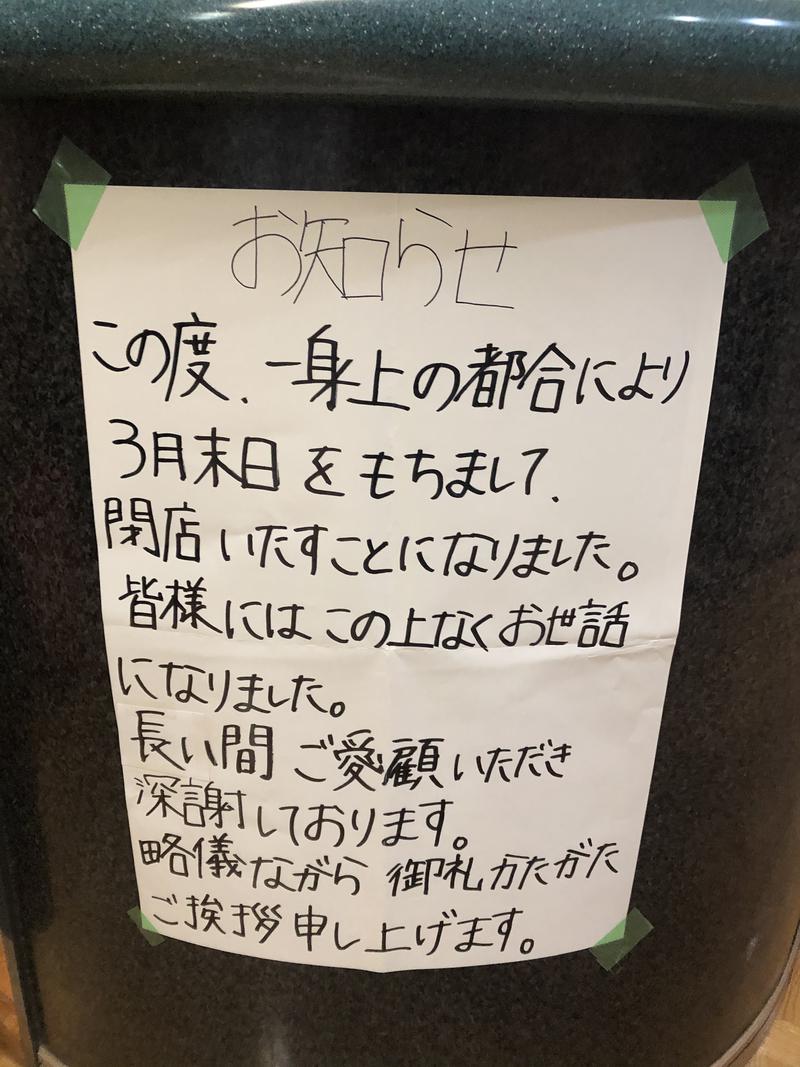 お知らせ
この度、一身上の都合により
3月末日をもちまして、
閉店いたすことになりました。
皆様にはこの上なくお世話
になりました。
長い間ご愛顧いただき
深謝しております。
略儀ながら御礼かたがた
ご挨拶申し上げます。